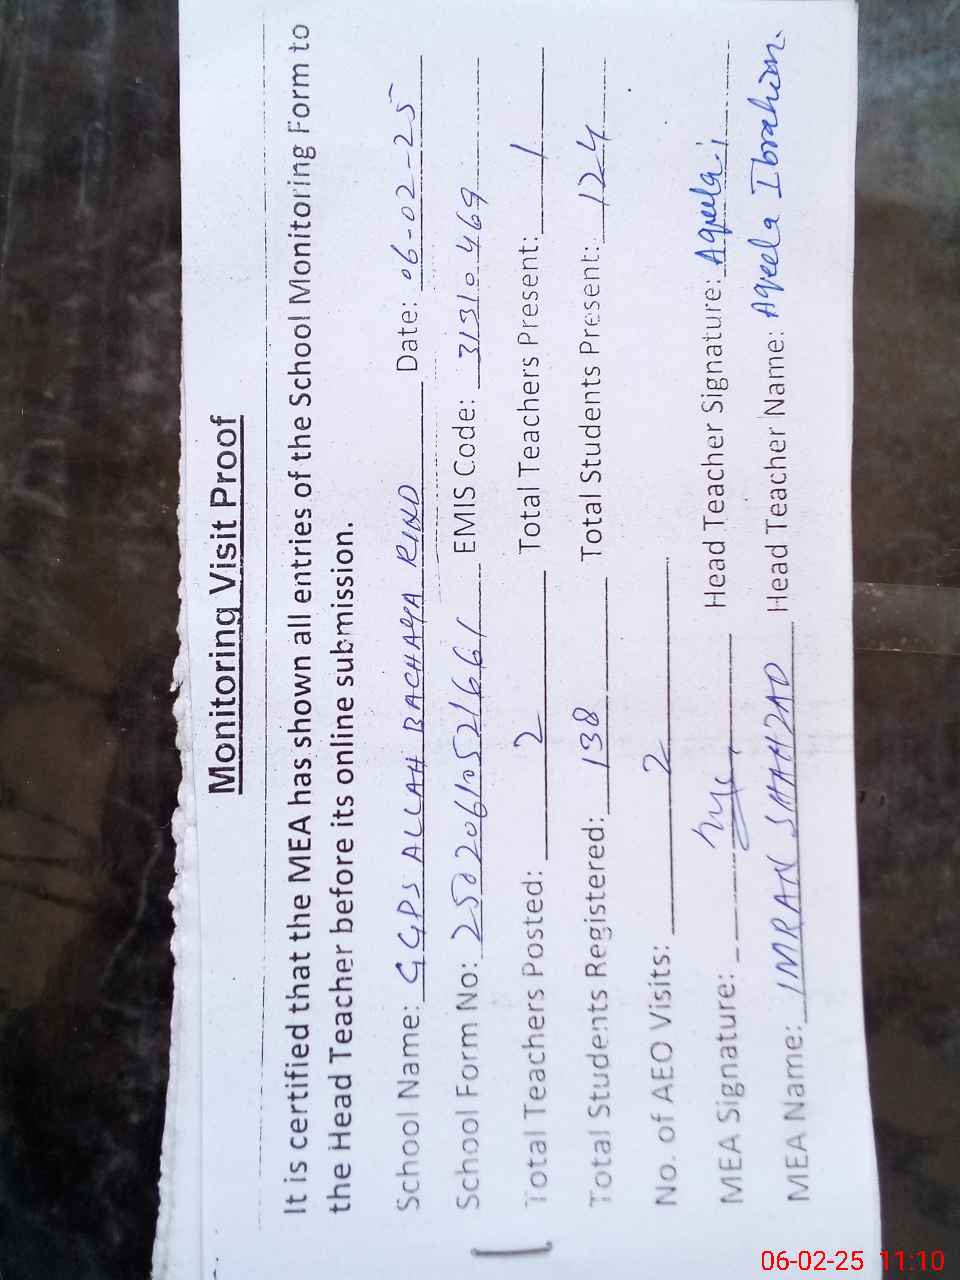 Monitoring Visit Proof
It is certified that the MEA has shown all entries of the School Monitoring Form to
the Head Teacher before its online submission.
School Name: GGPS ALLAH BACHAYA RIND Date: 06-02-25
School Form No: 2502061052166 1 EMIS Code: 31310469
Total Teachers Posted: 2 Total Teachers Present: 1
Total Students Registered: 138 Total Students Present: 124
No. of AEO Visits: 2
MEA Signature: Head Teacher Signature: Aqeela
MEA Name: IMRAN SHAHZAD Head Teacher Name: Aqeela Ibrahim
06-02-25 11:10